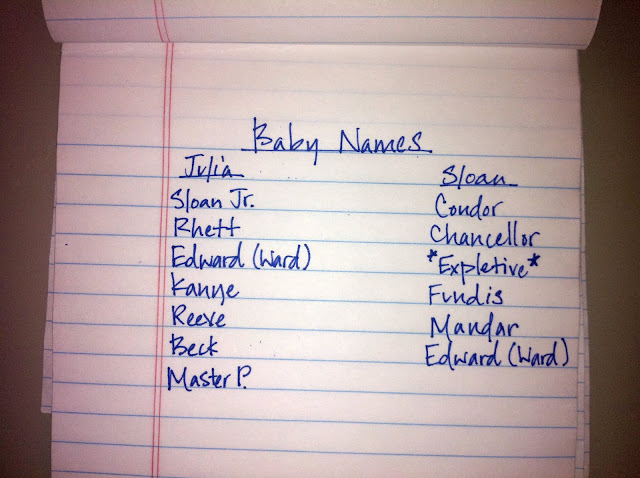 Baby Names
Julia
Sloan Jr.
Rhett
Edward (Ward)
Kanye
Reeve
Beck
Master P.
Sloan
Condor
Chancellor
*Expletive*
Fundis
Mandar
Edward (Ward)